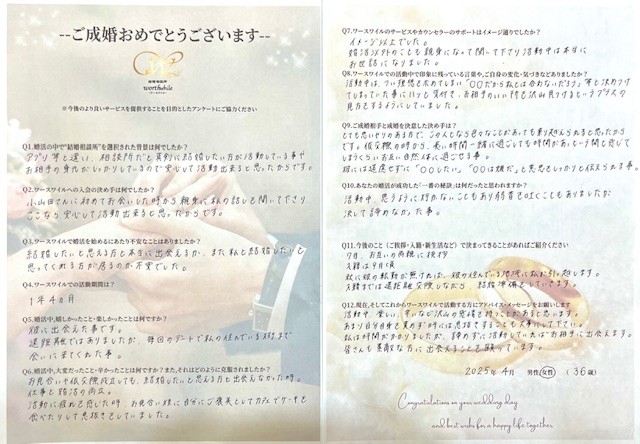 --ご成婚おめでとうございます--
結婚相談所
worthwhile
-ワースワイル-
※今後のより良いサービスを提供することを目的としたアンケートにご協力ください
Q1.婚活の中で"結婚相談所"を選択された背景は何でしたか?
アプリ等と違い、相談所だと真剣に結婚したい方が活動している事や
お相手の身元がしっかりしているので安心して活動出来ると思ったからです。
Q2.ワースワイルへの入会の決め手は何でしたか?
小山田さんに初めてお会いした時から親身に私の話しを聞いて下さり
ここなら安心して活動出来ると思ったからです。
Q3.ワースワイルで婚活を始めるにあたり不安なことはありましたか?
結婚したいと思える方と本当に出会えるか、また私と結婚したいと
思ってくれる方が居るのか不安でした。
Q4.ワースワイルでの活動期間は?
1年4ヵ月
Q5.婚活中、嬉しかったこと・楽しかったことは何ですか?
彼に出会えた事です。
遠距離ではありましたが、毎回のデートで私の住んでいる所まで
会いに来てくれた事。
Q6.婚活中、大変だったこと・辛かったことは何ですか?またそれはどのように克服されましたか?
お見合いや仮交際成立しても、結婚したいと思える方と出会えなかった時。
仕事と婚活の両立。
活動に疲れを感じた時、お見合い後に自分にご褒美としてカフェでケーキを
食べたりして息抜きしていました。
Q7.ワースワイルのサービスやカウンセラーのサポートはイメージ通りでしたか?
イメージ以上でした。
婚活以外のことも親身になって聞いて下さり活動中は本当に
お世話になりました。
Q8.ワースワイルでの活動中で印象に残っている言葉や、ご自身の変化・気づきなどありましたか?
活動中は、つい理想を求めてしまい「○○だから私とは合わないだろう」等と決めつけ
てしまっていた事にハッと気付き、お相手のいい所を沢山見つけるというプラスの
見方をするようにしていました。
Q9.ご成婚相手と成婚を決意した決め手は?
とても思いやりのある方で、この人となら色々なことがあっても乗り越えられると思ったから
です。仮交際の時から、長い時間一緒に過ごしても時間があっという間と感じて
しまうくらいお互い自然体に過ごせる事。
彼には遠慮せずに「○○したい。」「○○は嫌だ」と意思をしっかりと伝えられる事。
Q10.あなたの婚活が成功した「一番の秘訣」は何だったと思われますか?
活動中、思うように行かないこともあり弱音を吐くこともありましたが
決して諦めなかった事。
Q11.今後のこと(ご挨拶・入籍・新生活など)で決まってきていることがあればご紹介ください
7月、お互いの両親に挨拶
入籍は9月頃
秋に彼の転勤が無ければ、彼の住んでいる地域に私が引っ越します。
入籍までは遠距離交際しながら、結婚準備をしていきます。
Q12.現在、そしてこれからワースワイルで活動する方にアドバイス・メッセージをお願いします
活動中、楽しい、辛いなど沢山の感情を持つことがあると思います。
あまり自分自身を責めず時には息抜きすることも大事にして下さい。
私は時間がかかりましたが、諦めずに活動していればお相手に出会えます。
皆さんも素敵な方に出会えることを願っています。
2025年4月 男性・女性 (36歳)
Congratulations on your wedding day
and best wishes for a happy life together.